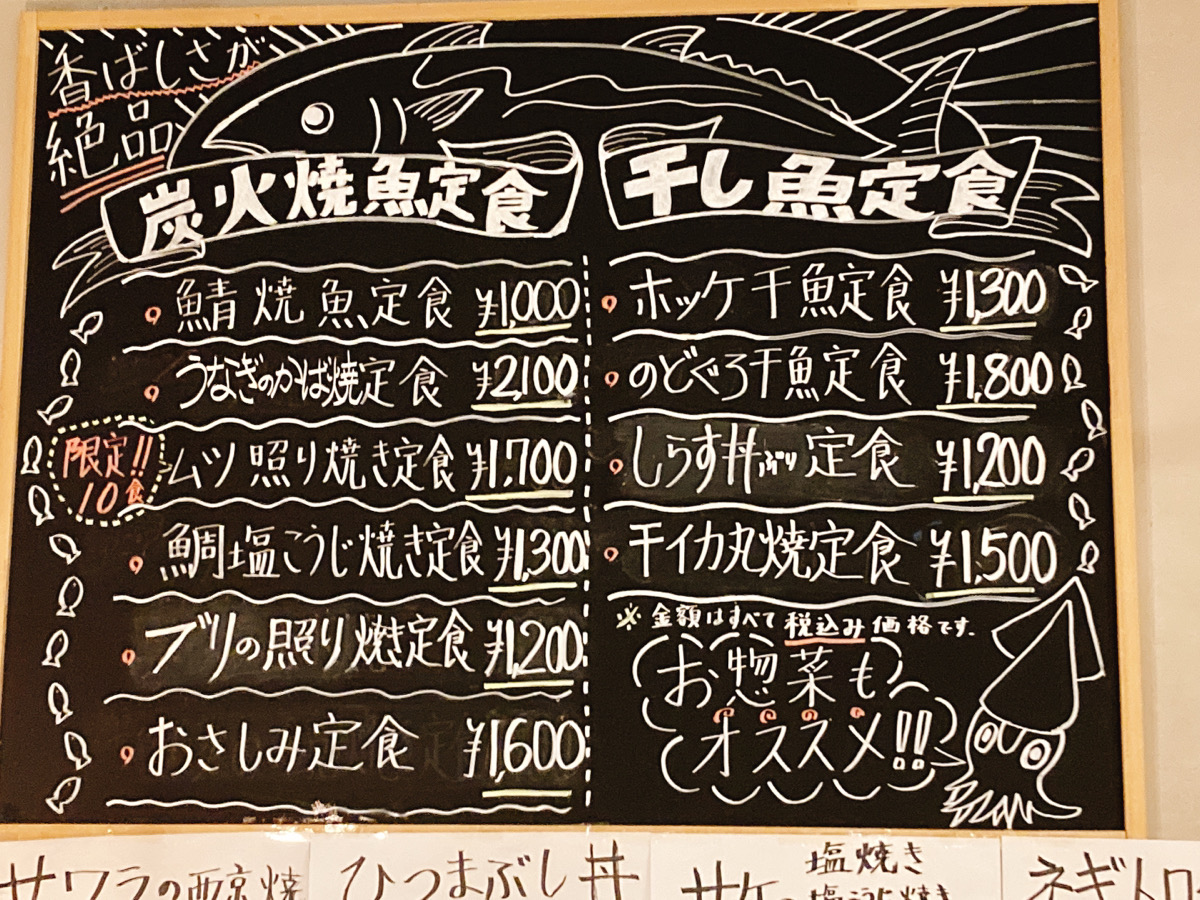 香ばしさが
絶品
炭火焼魚定食
鯖焼魚定食 ¥1,000
うなぎのかば焼定食 ¥2,100
限定!!
10食
ムツ照り焼き定食 ¥1,700
鯛塩こうじ焼き定食 ¥1,300
ブリの照り焼き定食 ¥1,200
おさしみ定食 ¥1,600
干し魚定食
ホッケ干魚定食 ¥1,300
のどぐろ干魚定食 ¥1,800
しらす丼ぶり定食 ¥1,200
干イカ丸焼定食 ¥1,500
※金額はすべて税込み価格です.
お惣菜も
オススメ!!
サワラの西京焼
ひつまぶし丼
塩焼き
サケの
塩こうじ焼き
ネギトロ